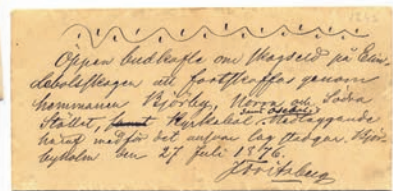 Öppen budkafle om skogseld på Elin-
debolsskogen att fortskaffas genom
hemmanen Björby, Norra och Södra
samt
Stället, samt Kyrkebol. Nedläggande
häraf medför det ansvar lag stadgar.
holm den 27 Juli 1876.